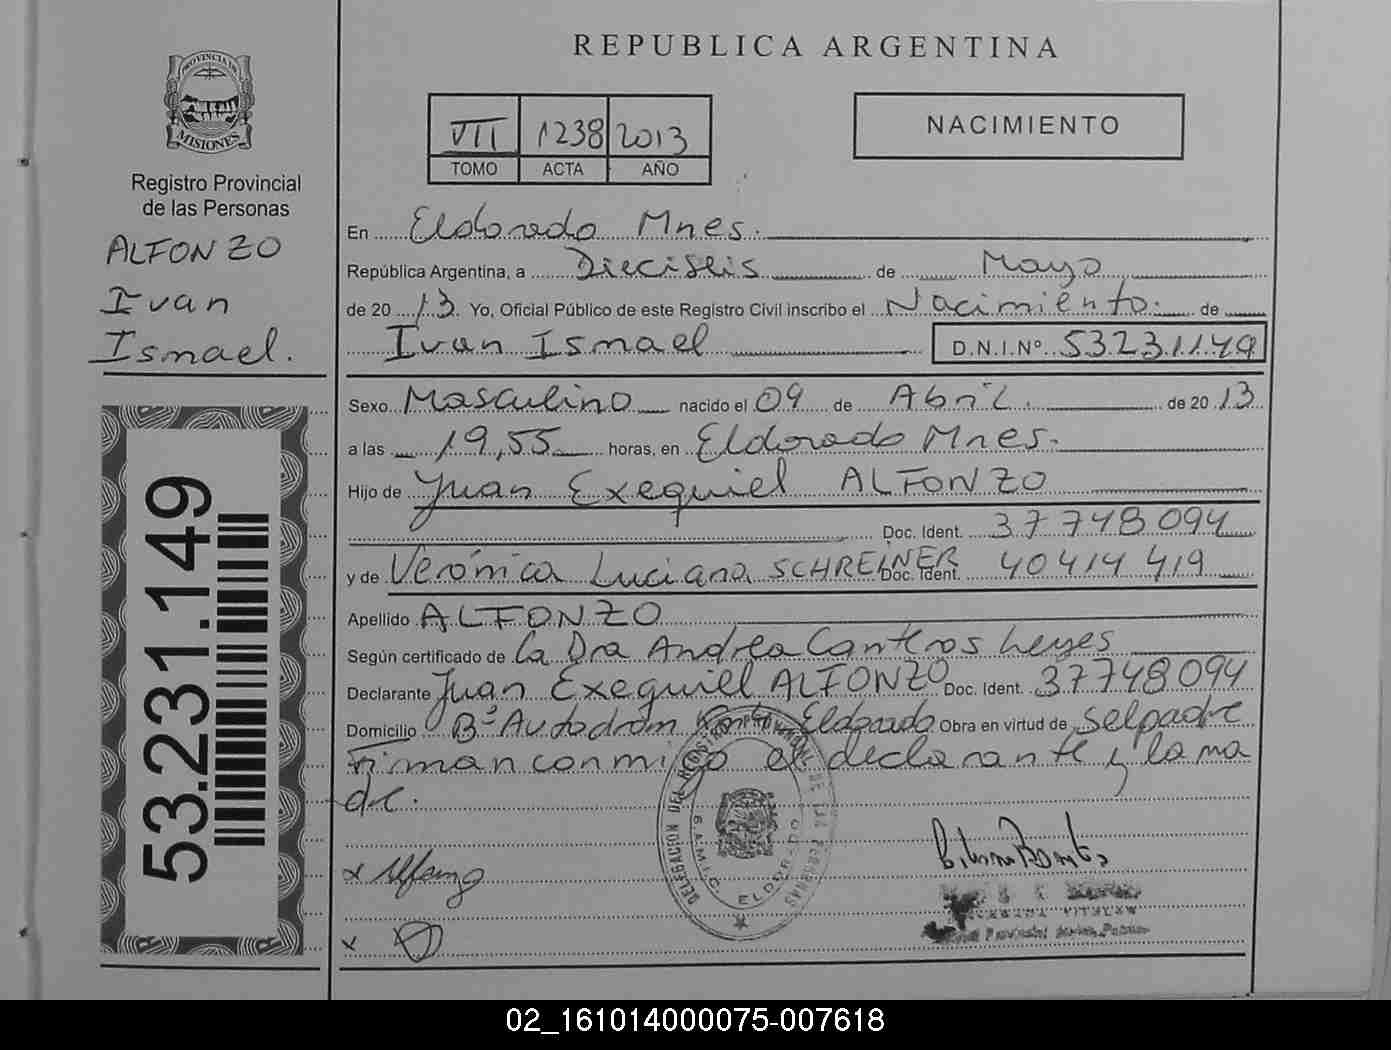 REPUBLICA ARGENTINA
PROVINCIA DE
MISIONES
Registro Provincial
de las Personas
ALFONZO
Ivan
Ismael.
53.231.149
VII 1238 2013
TOMO ACTA AÑO
NACIMIENTO
En Eldorado Mnes.
República Argentina, a Dieciseis de Mayo
de 20 13. Yo, Oficial Público de este Registro Civil inscribo el Nacimiento. de
Ivan Ismael D.N.I.Nº 53231149
Sexo Masculino nacido el 09 de Abril. de 20 13
a las 19,55 horas, en Eldorado Mnes.
Hijo de Juan Exequiel ALFONZO
Doc. Ident. 37748094
y de Verónica Luciana SCHREINER Doc. Ident. 40414419
Apellido ALFONZO
Según certificado de la Dra Andrea Canteros Leyes
Declarante Juan Exequiel ALFONZO Doc. Ident. 37748094
Domicilio Bº Autodrom Eldorado Obra en virtud de Selpadre
Firman conmigo el declarante y la ma
dre.
DELEGACION DEL REGISTRO DE LAS PERSONAS
S.A.M.I.C. ELDORADO
x
x
02_161014000075-007618